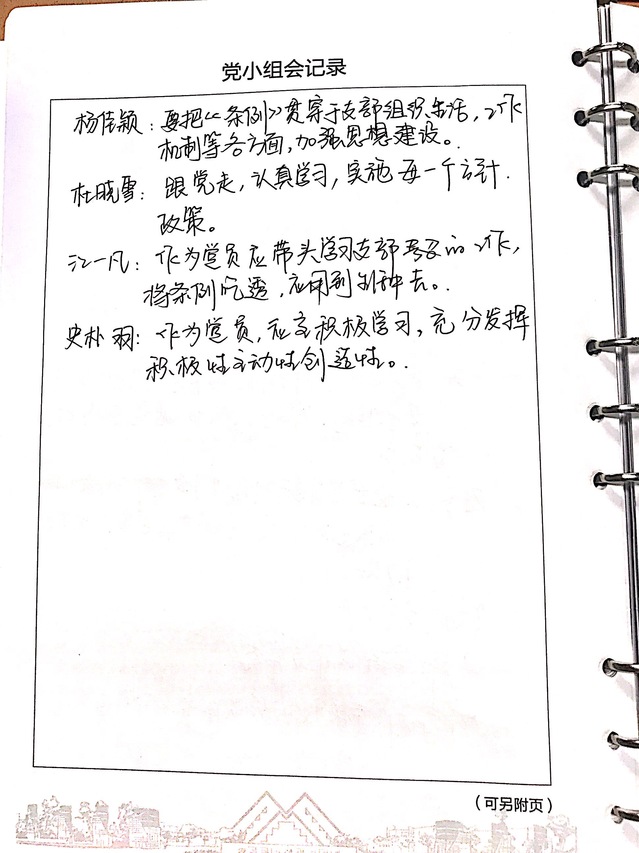 党小组会记录
杨佳颖：要把《条例》贯穿于支部组织生活，工作
机制等各方面，加强思想建设。
杜晓雪：跟党走，认真学习，实施每一个方针
政策。
江一凡：作为党员应带头学习支部的工作，
将条例吃透，应用到当中去。
史朴羽：作为党员，应该积极学习，充分发挥
积极性主动性创造性。
（可另附页）